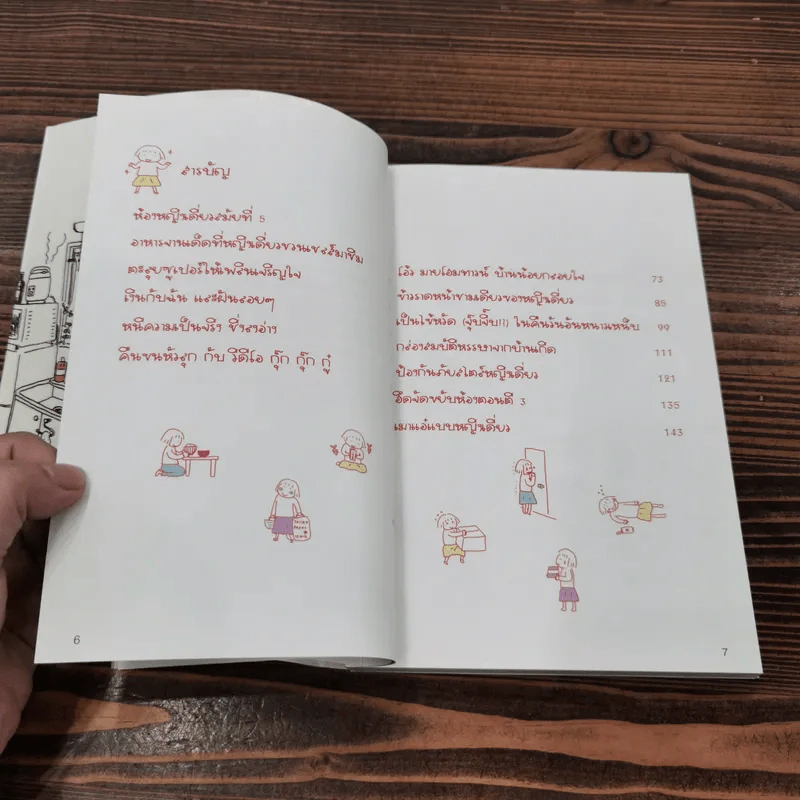 สารบัญ
ห้องหญิงเดี่ยวสมัยที่ 5
อาหารจานเด็ดที่หญิงเดี่ยวชวนเชฟส์มาชิม
ตะลุยซูเปอร์ให้เพลินเจริญใจ
เงินกับฉัน และฝันลอยๆ
หนีความเป็นจริง ซี้ซงอ่าง
คืนขนหัวลุก กับ วิดีโอ กุ๊ก กุ๊ก กู๋
6
โอ้ว มายโฮมทาวน์ บ้านน้อยกลอยใจ 73
ข้าวราดหน้าชามเดียวของหญิงเดี่ยว 85
เป็นไข้หวัด (จุ๊บจิ๊บ!!) ในคืนวันอันหนาวเหน็บ 99
กล่องสมบัติหรรษาจากบ้านเกิด 111
ป้องกันภัยสไตล์หญิงเดี่ยว 121
ฮึดจัดขยับห้องตอนตี 3 135
เมาแอ๋แบบหญิงเดี่ยว 143
7